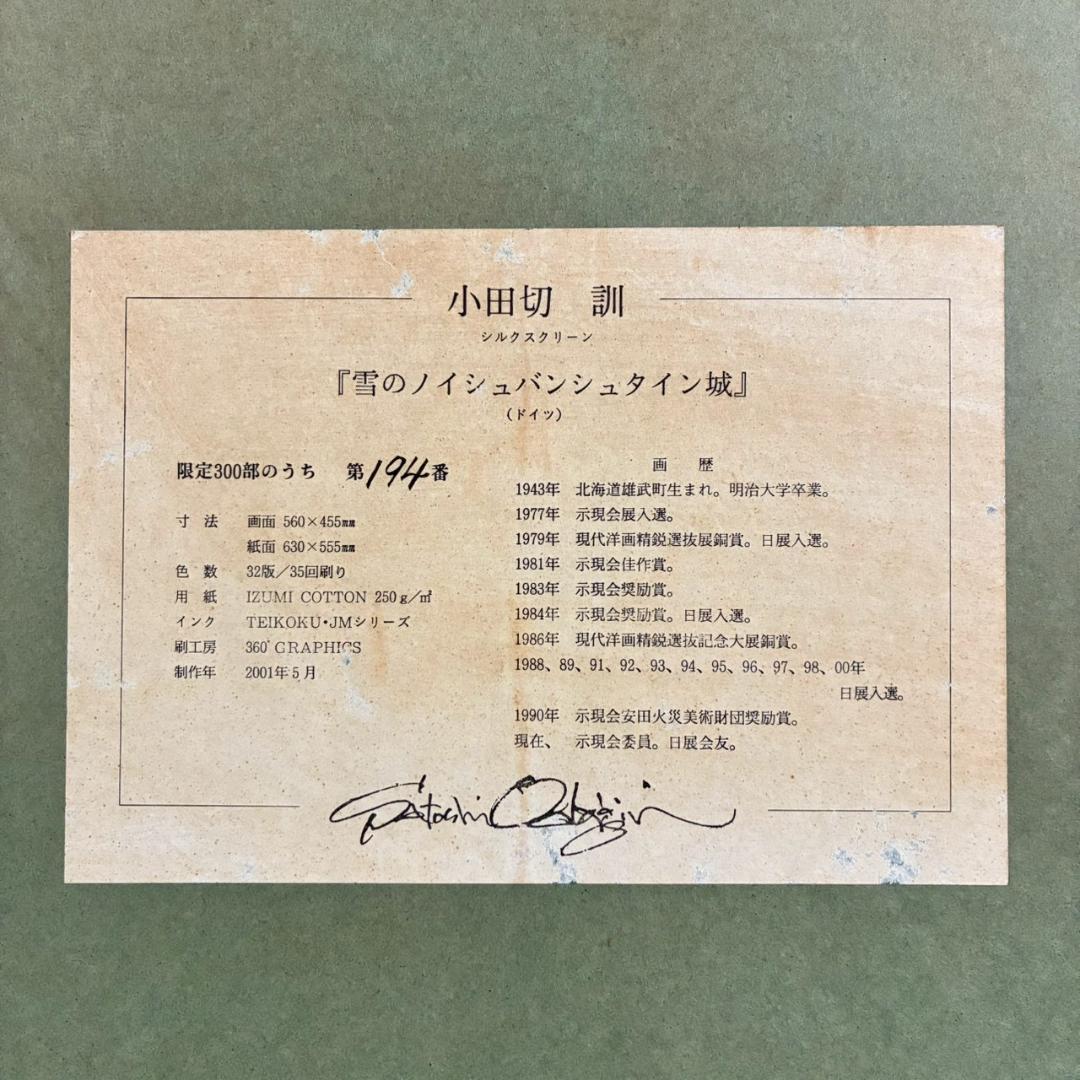 小田切 訓
シルクスクリーン
『雪のノイシュバンシュタイン城』
(ドイツ)
限定300部のうち 第194番
寸法 画面 560×455㎜
紙面 630×555㎜
色数 32版/35回刷り
用紙 IZUMI COTTON 250g/㎡
インク TEIKOKU・JMシリーズ
刷工房 360°GRAPHICS
制作年 2001年5月
画歴
1943年 北海道雄武町生まれ。明治大学卒業。
1977年 示現会展入選。
1979年 現代洋画精鋭選抜展銅賞。日展入選。
1981年 示現会佳作賞。
1983年 示現会奨励賞。
1984年 示現会奨励賞。日展入選。
1986年 現代洋画精鋭選抜記念大展銅賞。
1988、89、91、92、93、94、95、96、97、98、00年
日展入選。
1990年 示現会安田火災美術財団奨励賞。
現在、 示現会委員。日展会友。
Satoshi Odagiri